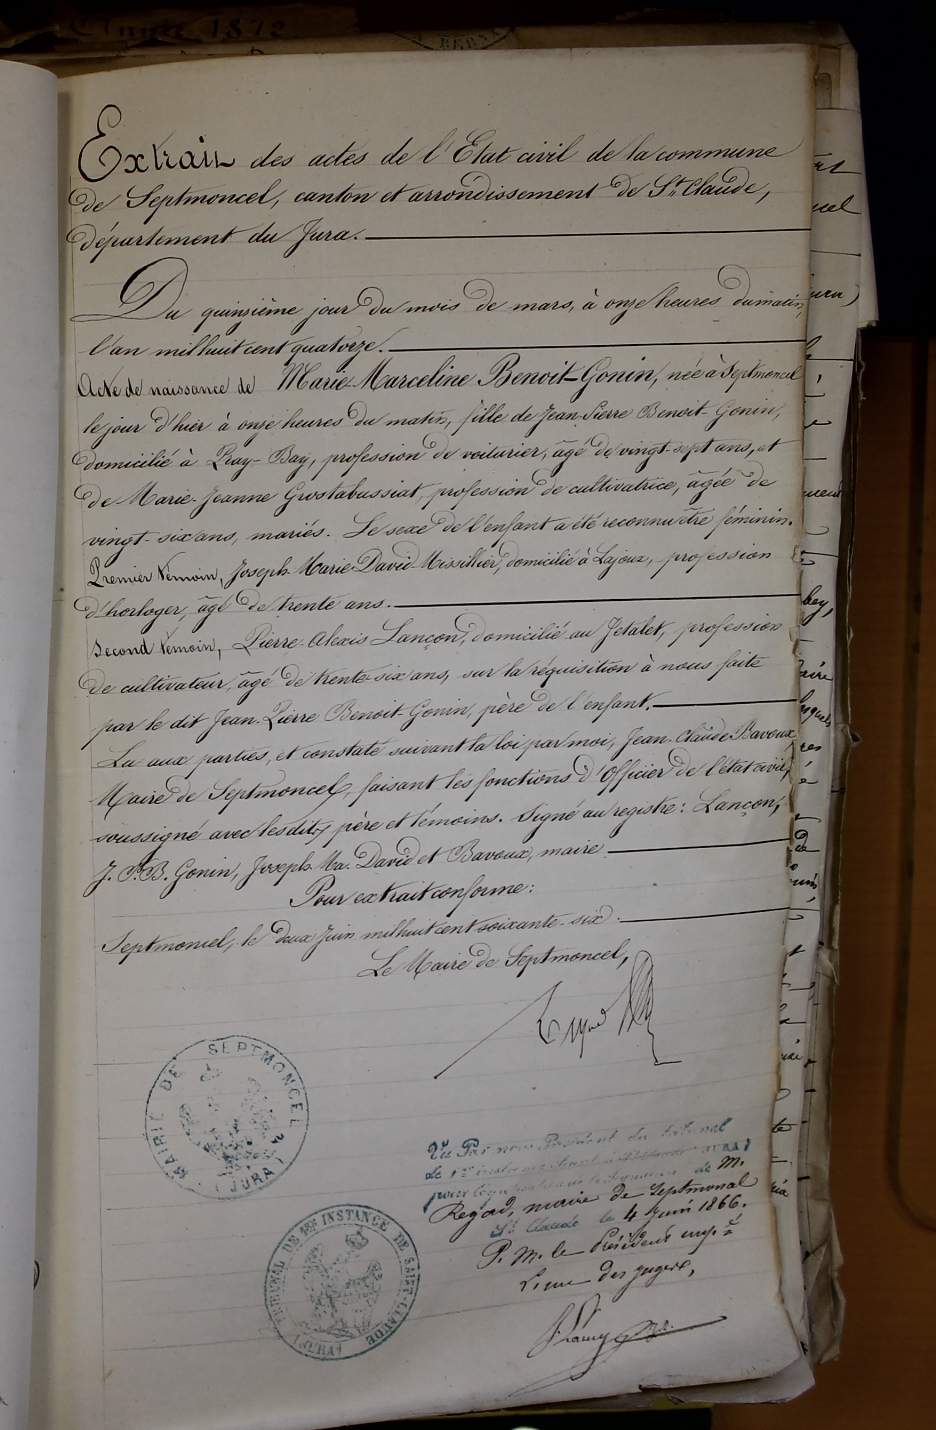 Année 1812
Extrait des actes de l'Etat civil de la commune
de Septmoncel, canton et arrondissement de St Claude,
département du Jura.
Du quinzième jour du mois de mars, à onze heures du matin,
l'an mil huit cent quatorze.
Acte de naissance de Marie-Marceline Benoit-Gonin, née à Septmoncel
le jour d'hier à onze heures du matin, fille de Jean-Pierre Benoit-Gonin,
domicilié à Pray-Bay, profession de voiturier, âgé de vingt-sept ans, et
de Marie-Jeanne Grostabussiat, profession de cultivatrice, âgée de
vingt-six ans, mariés. Le sexe de l'enfant a été reconnu être féminin.
Premier témoin, Joseph-Marie-David Missillier, domicilié à Lajoux, profession
d'horloger, âgé de trente ans.
Second témoin, Pierre-Alexis Lançon, domicilié au Jétalet, profession
de cultivateur, âgé de trente-six ans, sur la réquisition à nous faite
par le dit Jean-Pierre Benoit-Gonin, père de l'enfant.
Lu aux parties, et constaté suivant la loi par moi, Jean-Claude Bavoux
Maire de Septmoncel, faisant les fonctions d'Officier de l'état civil,
soussigné avec lesdits père et témoins. Signé au registre: Lançon,
J. P. B. Gonin, Joseph Ma. David et Bavoux, maire.
Pour extrait conforme:
Septmoncel, le deux Juin mil huit cent soixante-six.
Le Maire de Septmoncel,
MAIRIE DE SEPTMONCEL
(JURA)
Vu Par nous Président du tribunal
de 1re instance (JURA)
pour légalisation de la signature de M.
Regad, maire de Septmoncel
St Claude le 4 Juin 1866.
P. M. le Président emp.é
L'un des juges,
TRIBUNAL DE 1ERE INSTANCE DE SAINT-CLAUDE
(JURA)